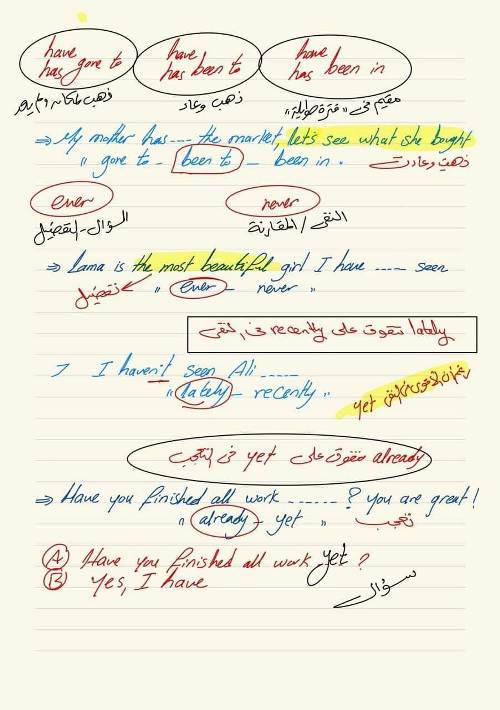 have has gone to
have has been to
have has been in
ذهب لمكان ولم يعد
ذهب وعاد
مقيم فى "فترة طويلة"
⇒ My mother has ---- the market, let's see what she bought
" gone to - been to - been in .
ذهبت وعادت
ever
never
السؤال - التفضيل
النفى / المقارنة
⇒ Lama is the most beautiful girl I have ---- seen
تفضيل " ever - never "
lately تتفوق على recently فى النفى
I haven't seen Ali -----
" lately - recently "
yet
already متفوق على yet فى التعجب
⇒ Have you finished all work ------ ? You are great!
" already - yet " تعجب
A Have you finished all work yet ?
B Yes, I have
سؤال